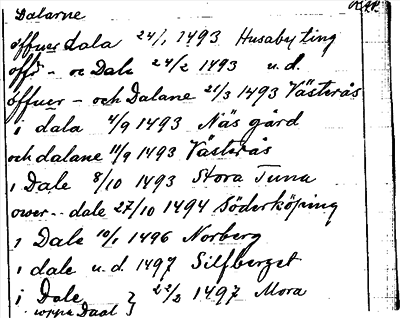 Dalarne
öffuer dala 24/1 1493 Husaby ting
öffr - oc Dale 24/2 1493 u.d.
öffuer - och Dalane 21/3 1493 Västerås
i dala 4/9 1493 Näs gård
och dalane 11/9 1493 Västerås
i Dale 8/10 1493 Stora Tuna
ower - dale 27/10 1494 Söderköping
i Dale 10/1 1496 Norberg
i dale u.d. 1497 Silfberget
i Dale } 22/2 1497 Mora
wppa Daal